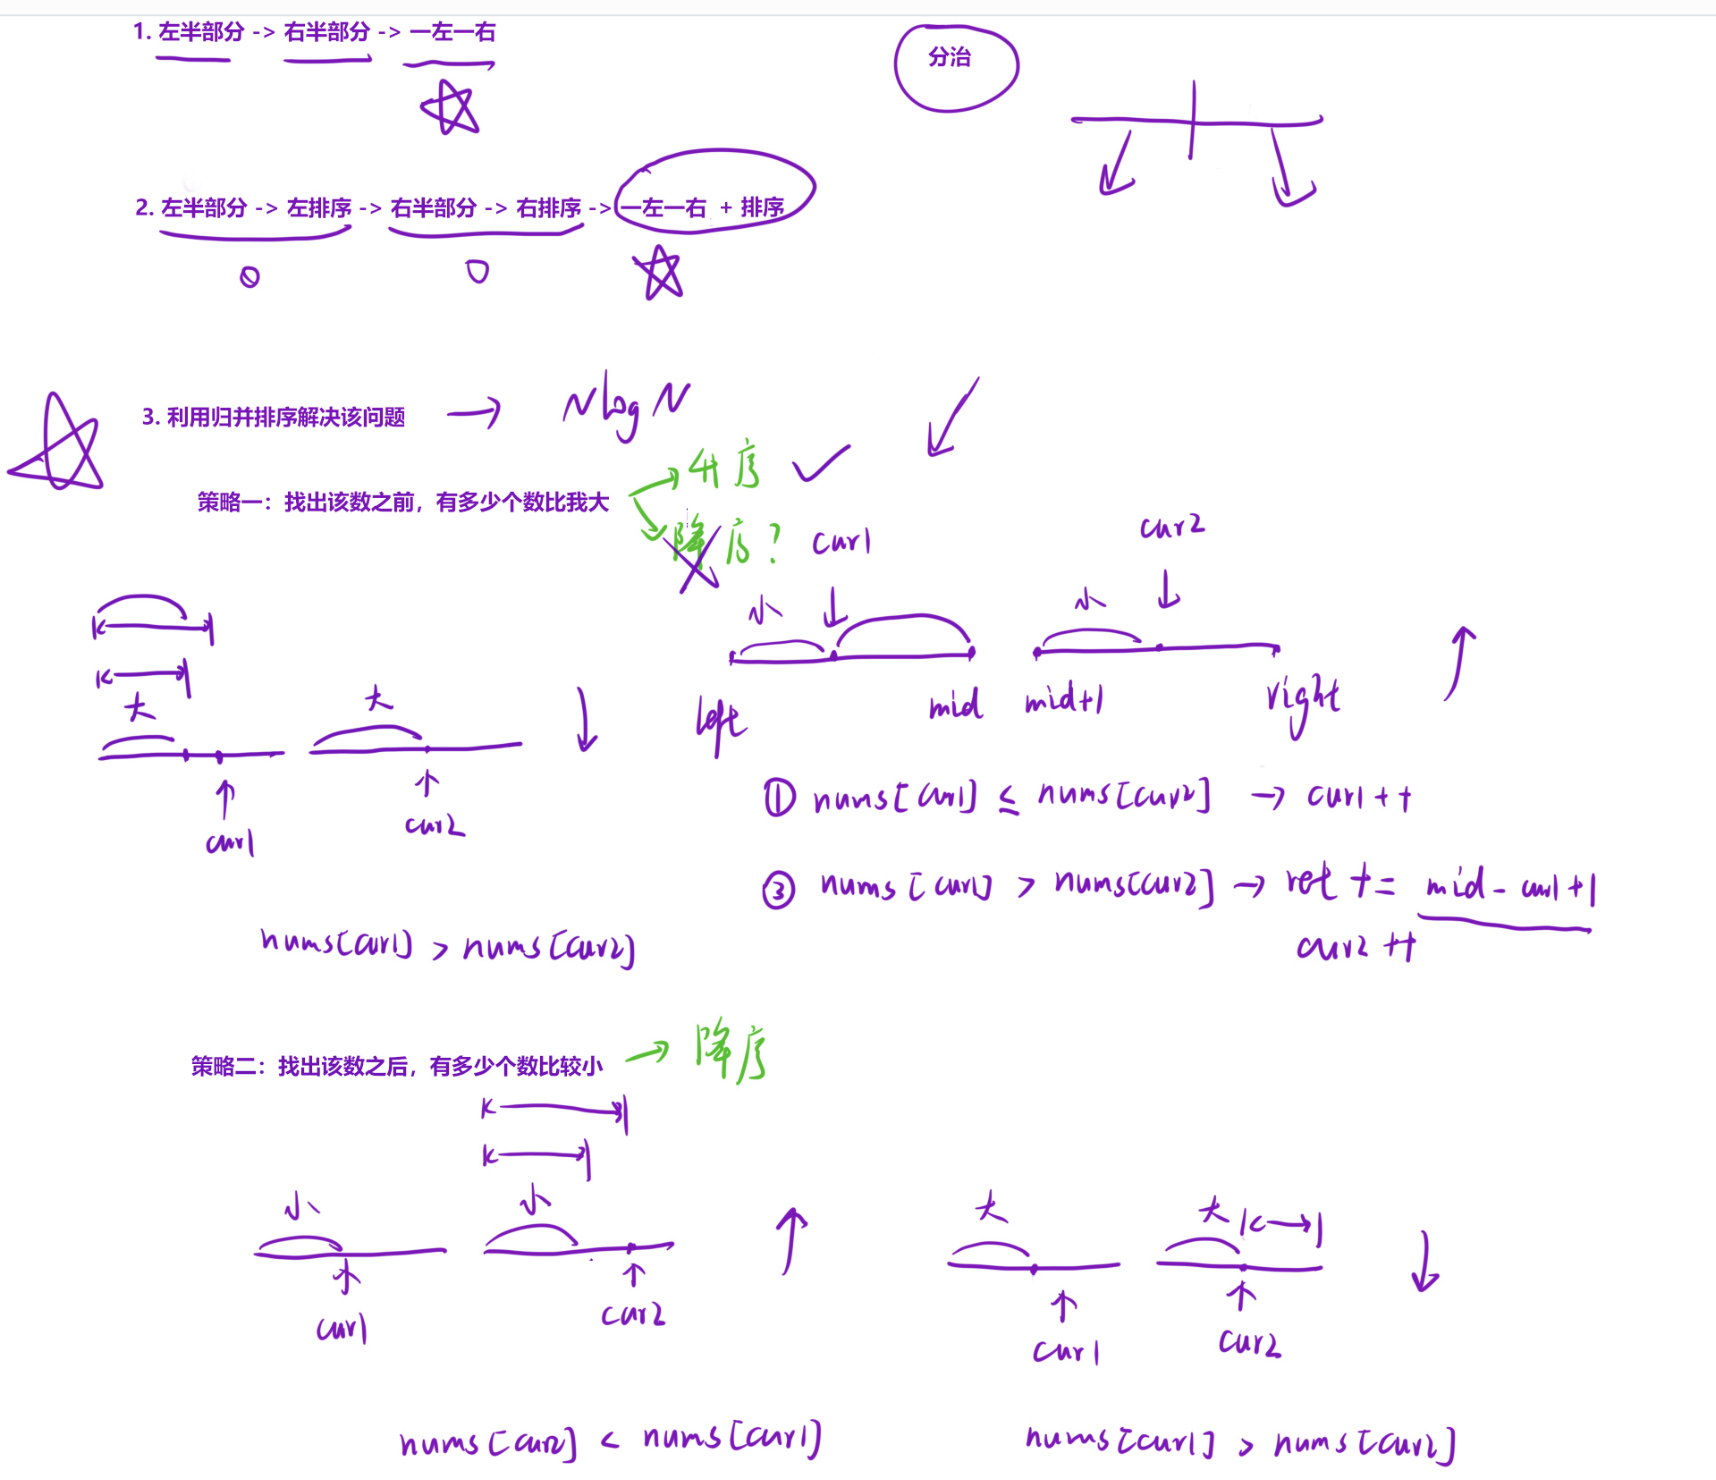 1. 左半部分 -> 右半部分 -> 一左一右
分治
2. 左半部分 -> 左排序 -> 右半部分 -> 右排序 -> 一左一右 + 排序
3. 利用归并排序解决该问题 → NlogN
升序
策略一：找出该数之前，有多少个数比我大
降序？
cur1
cur2
小
小
大
大
left
mid
mid+1
right
cur1
cur2
① nums[cur1] ≤ nums[cur2] → cur1++
③ nums[cur1] > nums[cur2] → ret += mid - cur1 + 1
cur2++
nums[cur1] > nums[cur2]
策略二：找出该数之后，有多少个数比较小 → 降序
小
小
大
大
cur1
cur2
cur1
cur2
nums[cur2] < nums[cur1]
nums[cur1] > nums[cur2]